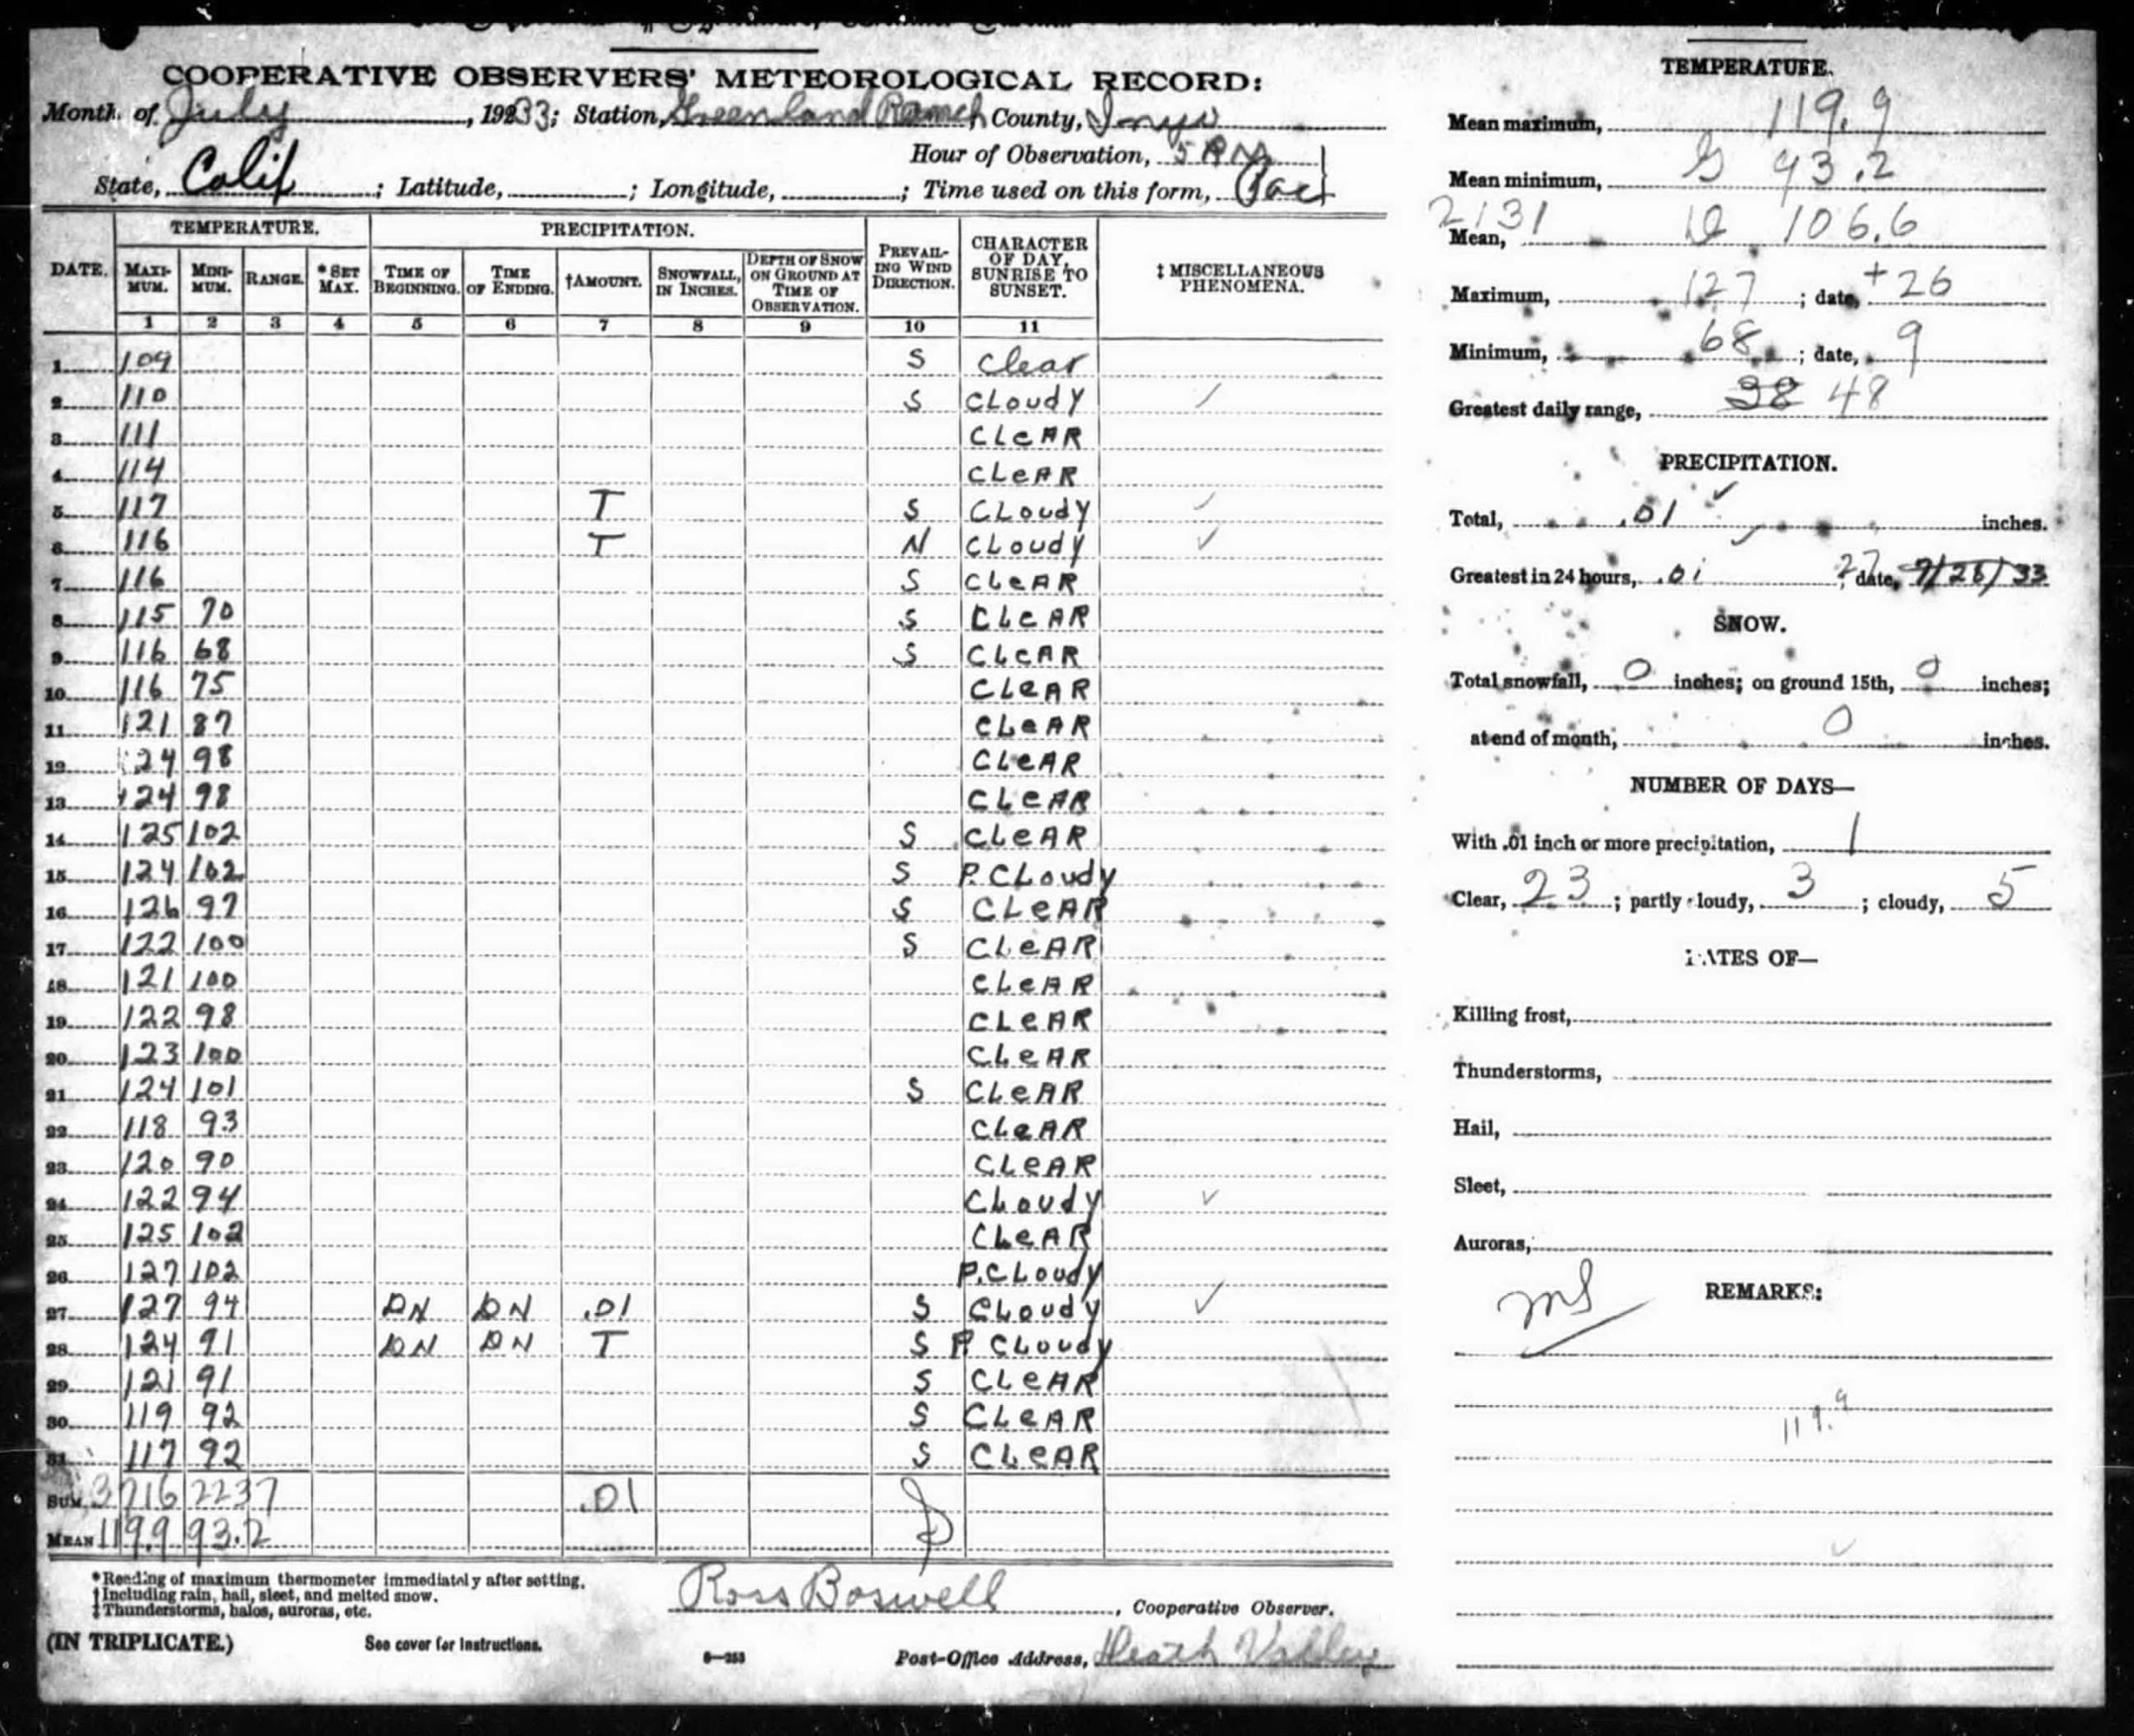 COOPERATIVE OBSERVERS' METEOROLOGICAL RECORD:
Month of July, 1933; Station, Greenland Ranch, County, Inyo
Hour of Observation, 5 PM
State, Calif; Latitude, ; Longitude, ; Time used on this form, Pac
DATE. TEMPERATURE. PRECIPITATION. PREVAILING WIND DIRECTION. CHARACTER OF DAY, SUNRISE TO SUNSET. ‡ MISCELLANEOUS PHENOMENA.
MAXIMUM. MINIMUM. RANGE. *SET MAX. TIME OF BEGINNING. TIME OF ENDING. †AMOUNT. SNOWFALL, IN INCHES. DEPTH OF SNOW ON GROUND AT TIME OF OBSERVATION.
1 2 3 4 5 6 7 8 9 10 11
1 109 S Clear
2 110 S CLoudY ✓
3 111 CLeAR
4 114 CLeAR
5 117 T S CLoudY ✓
6 116 T N CLoudY ✓
7 116 S CLeAR
8 115 70 S CLeAR
9 116 68 S CLeAR
10 116 75 CLeAR
11 121 87 CLeAR
12 124 98 CLeAR
13 124 98 CLeAR
14 125 102 S CLeAR
15 124 102 S P.CLoudy
16 126 97 S CLeAR
17 122 100 S CLeAR
18 121 100 CLeAR
19 122 98 CLeAR
20 123 100 CLeAR
21 124 101 S CLeAR
22 118 93 CLeAR
23 120 90 CLeAR
24 122 94 CLoudy ✓
25 125 102 CLeAR
26 127 102 P.CLoudy
27 127 94 DN DN .01 S CLoudy ✓
28 124 91 DN DN T S P CLoudy
29 121 91 S CLeAR
30 119 92 S CLeAR
31 117 92 S CLeAR
SUM, 3716 2237 .01
MEAN 119.9 93.2
*Reading of maximum thermometer immediately after setting.
†Including rain, hail, sleet, and melted snow.
‡Thunderstorms, halos, auroras, etc.
Ross Boswell, Cooperative Observer.
(IN TRIPLICATE.) See cover for instructions. 8—253 Post-Office Address, Death Valley
TEMPERATURE.
Mean maximum, 119.9
Mean minimum, 93.2
2131
Mean, 106.6
Maximum, 127; date, +26
Minimum, 68; date, 9
Greatest daily range, 38 48
PRECIPITATION.
Total, .01 ✓ inches.
Greatest in 24 hours, .01 27; date, 7/26/33
SNOW.
Total snowfall, 0 inches; on ground 15th, 0 inches;
at end of month, 0 inches.
NUMBER OF DAYS—
With .01 inch or more precipitation, 1
Clear, 23; partly cloudy, 3; cloudy, 5
DATES OF—
Killing frost,
Thunderstorms,
Hail,
Sleet,
Auroras,
REMARKS:
119.9